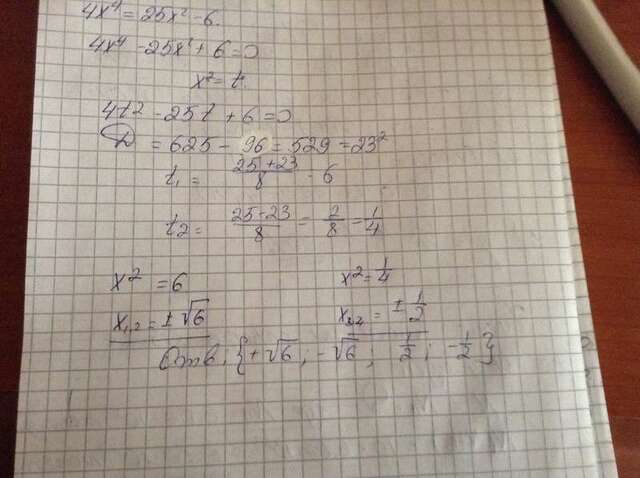 4x⁴ = 25x² - 6.
4x⁴ - 25x² + 6 = 0
x² = t.
4t2 - 25t + 6 = 0
D = 625 - 96 = 529 = 23²
t₁ = (25+23)/8 = 6
t₂ = (25-23)/8 = 2/8 = 1/4
x² = 6 x² = 1/4
x₁,₂ = ±√6 x₃,₄ = ±1/2
Отв, {+√6; -√6; 1/2; -1/2}